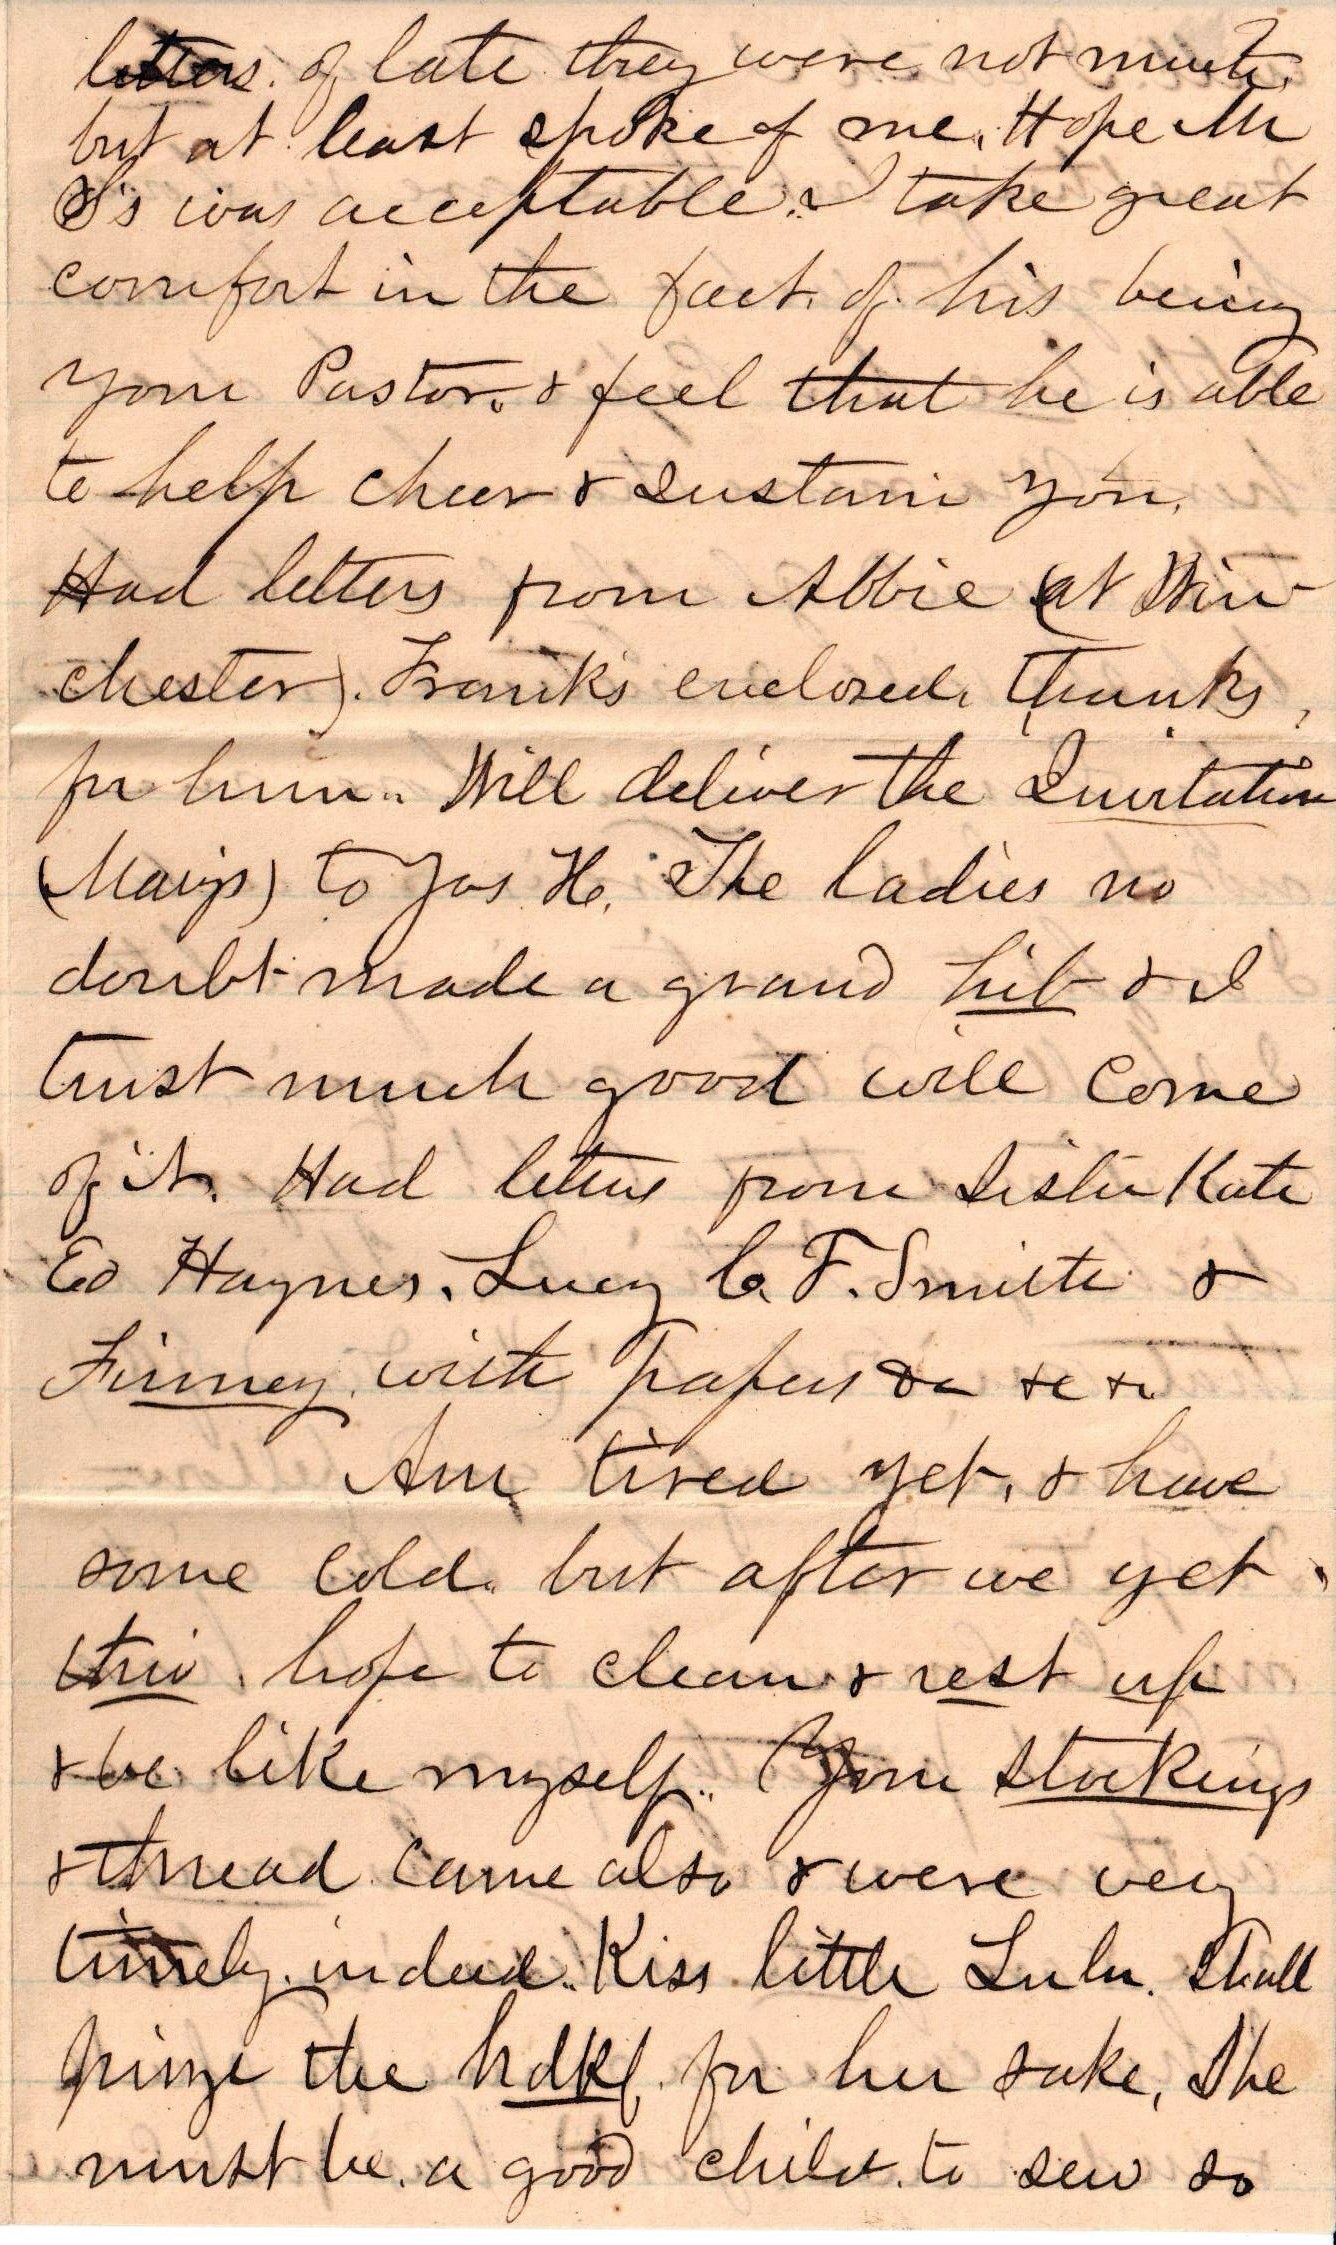 letters. of late they were not much,
but at least spoke of me. Hope Mr
S's was acceptable. I take great
comfort in the fact. of his being
your Pastor. & feel that he is able
to help cheer & sustain you.
Had letters from Abbie (at Win
chester). Frank's enclosed. thanks,
for him.. Will deliver the Invitation
(Marys) to Jas H. The ladies no
doubt made a grand hit & I
trust much good will come
of it. Had letters from Sister Kate
Ed Haynes. Lucy C. F. Smith &
Finney. with papers &c &c &c
Am tired yet, & have
some cold. but after we get
thro. hope to clean & rest up
& be like myself.. Your stockings
& thread came also & were very
timely. indeed.. Kiss little Lulu. Shall
prize the hdkf. for her sake, She
must be. a good child. to sew so